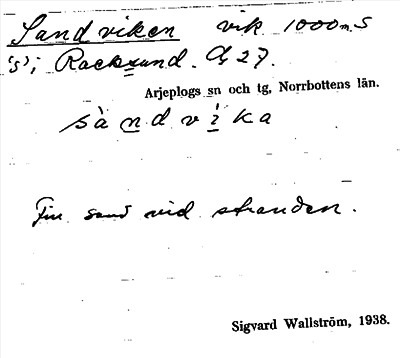 Sandviken vik 1000 m. S
"S"; Racksund. G 27.
Arjeplogs sn och tg, Norrbottens län.
sàndvika
Fin sand vid stranden.
Sigvard Wallström, 1938.